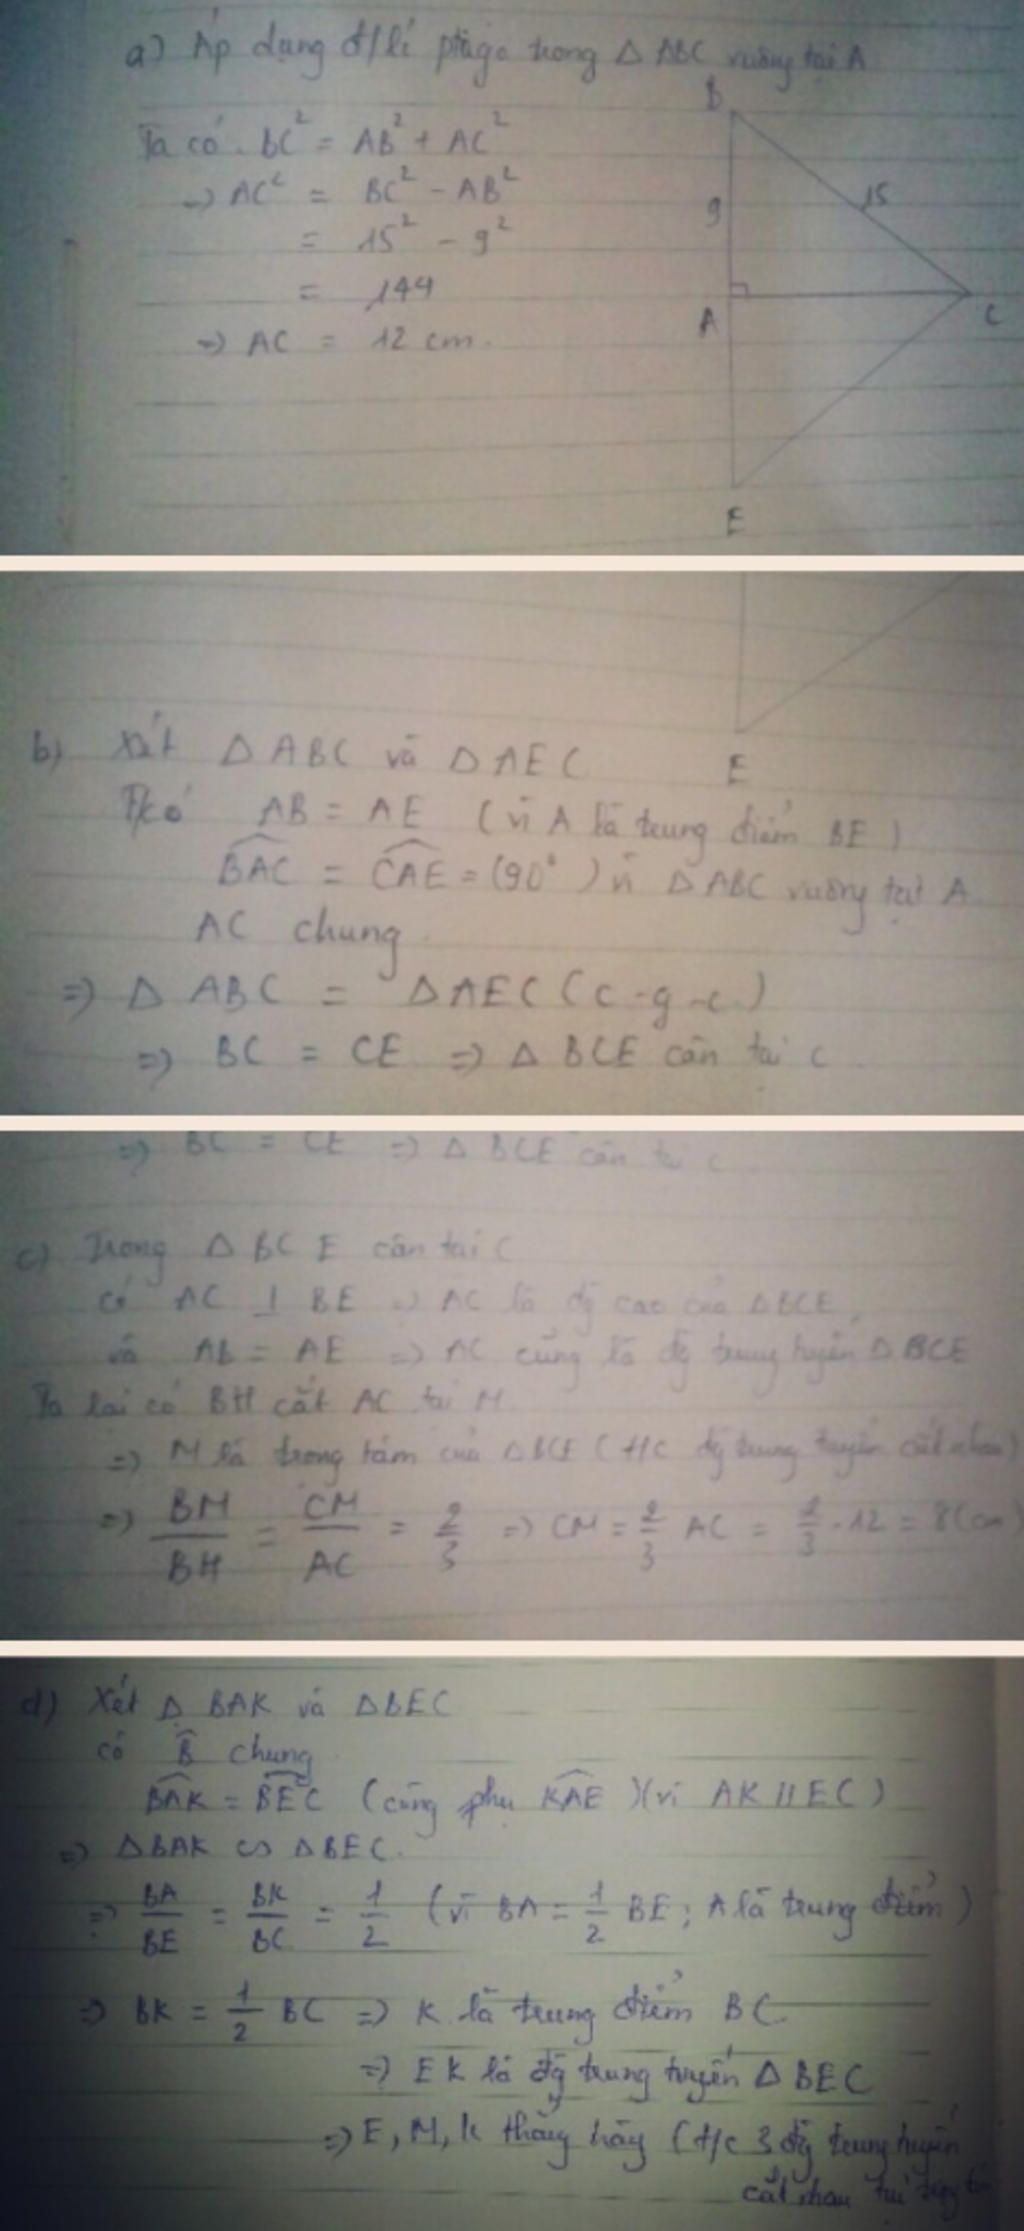 a) Áp dụng đ/lí pitago trong Δ ABC vuông tại A
Ta có. BC² = AB² + AC²
=> AC² = BC² - AB²
= 15² - 9²
= 144
=> AC = 12 cm.
B
9
15
A
C
E
E
b) Xét Δ ABC và Δ AEC
Ta có AB = AE (vì A là trung điểm BE)
BAC = CAE = (90°) vì Δ ABC vuông tại A
AC chung
=> Δ ABC = Δ AEC (c-g-c)
=> BC = CE => Δ BCE cân tại C.
=> BC = CE => Δ BCE cân tại C
c) Trong Δ BCE cân tại C
có AC ⊥ BE => AC là đg cao của Δ BCE
và AB = AE => AC cũng là đg trung tuyến Δ BCE
Ta lại có BH cắt AC tại M
=> M là trọng tâm của Δ BCE (t/c đg trung tuyến cắt nhau)
=> BM/BH = CM/AC = 2/3 => CM = 2/3 AC = 2/3 . 12 = 8 (cm)
d) Xét Δ BAK và Δ BEC
có B chung
BAK = BEC (cùng phụ KAE) (vì AK // EC)
=> Δ BAK ∽ Δ BEC.
=> BA/BE = BK/BC = 1/2 (vì BA = 1/2 BE ; A là trung điểm)
=> BK = 1/2 BC => K là trung điểm BC
=> EK là đg trung tuyến Δ BEC
=> E, M, K thẳng hàng (t/c 3 đg trung tuyến
cắt nhau tại